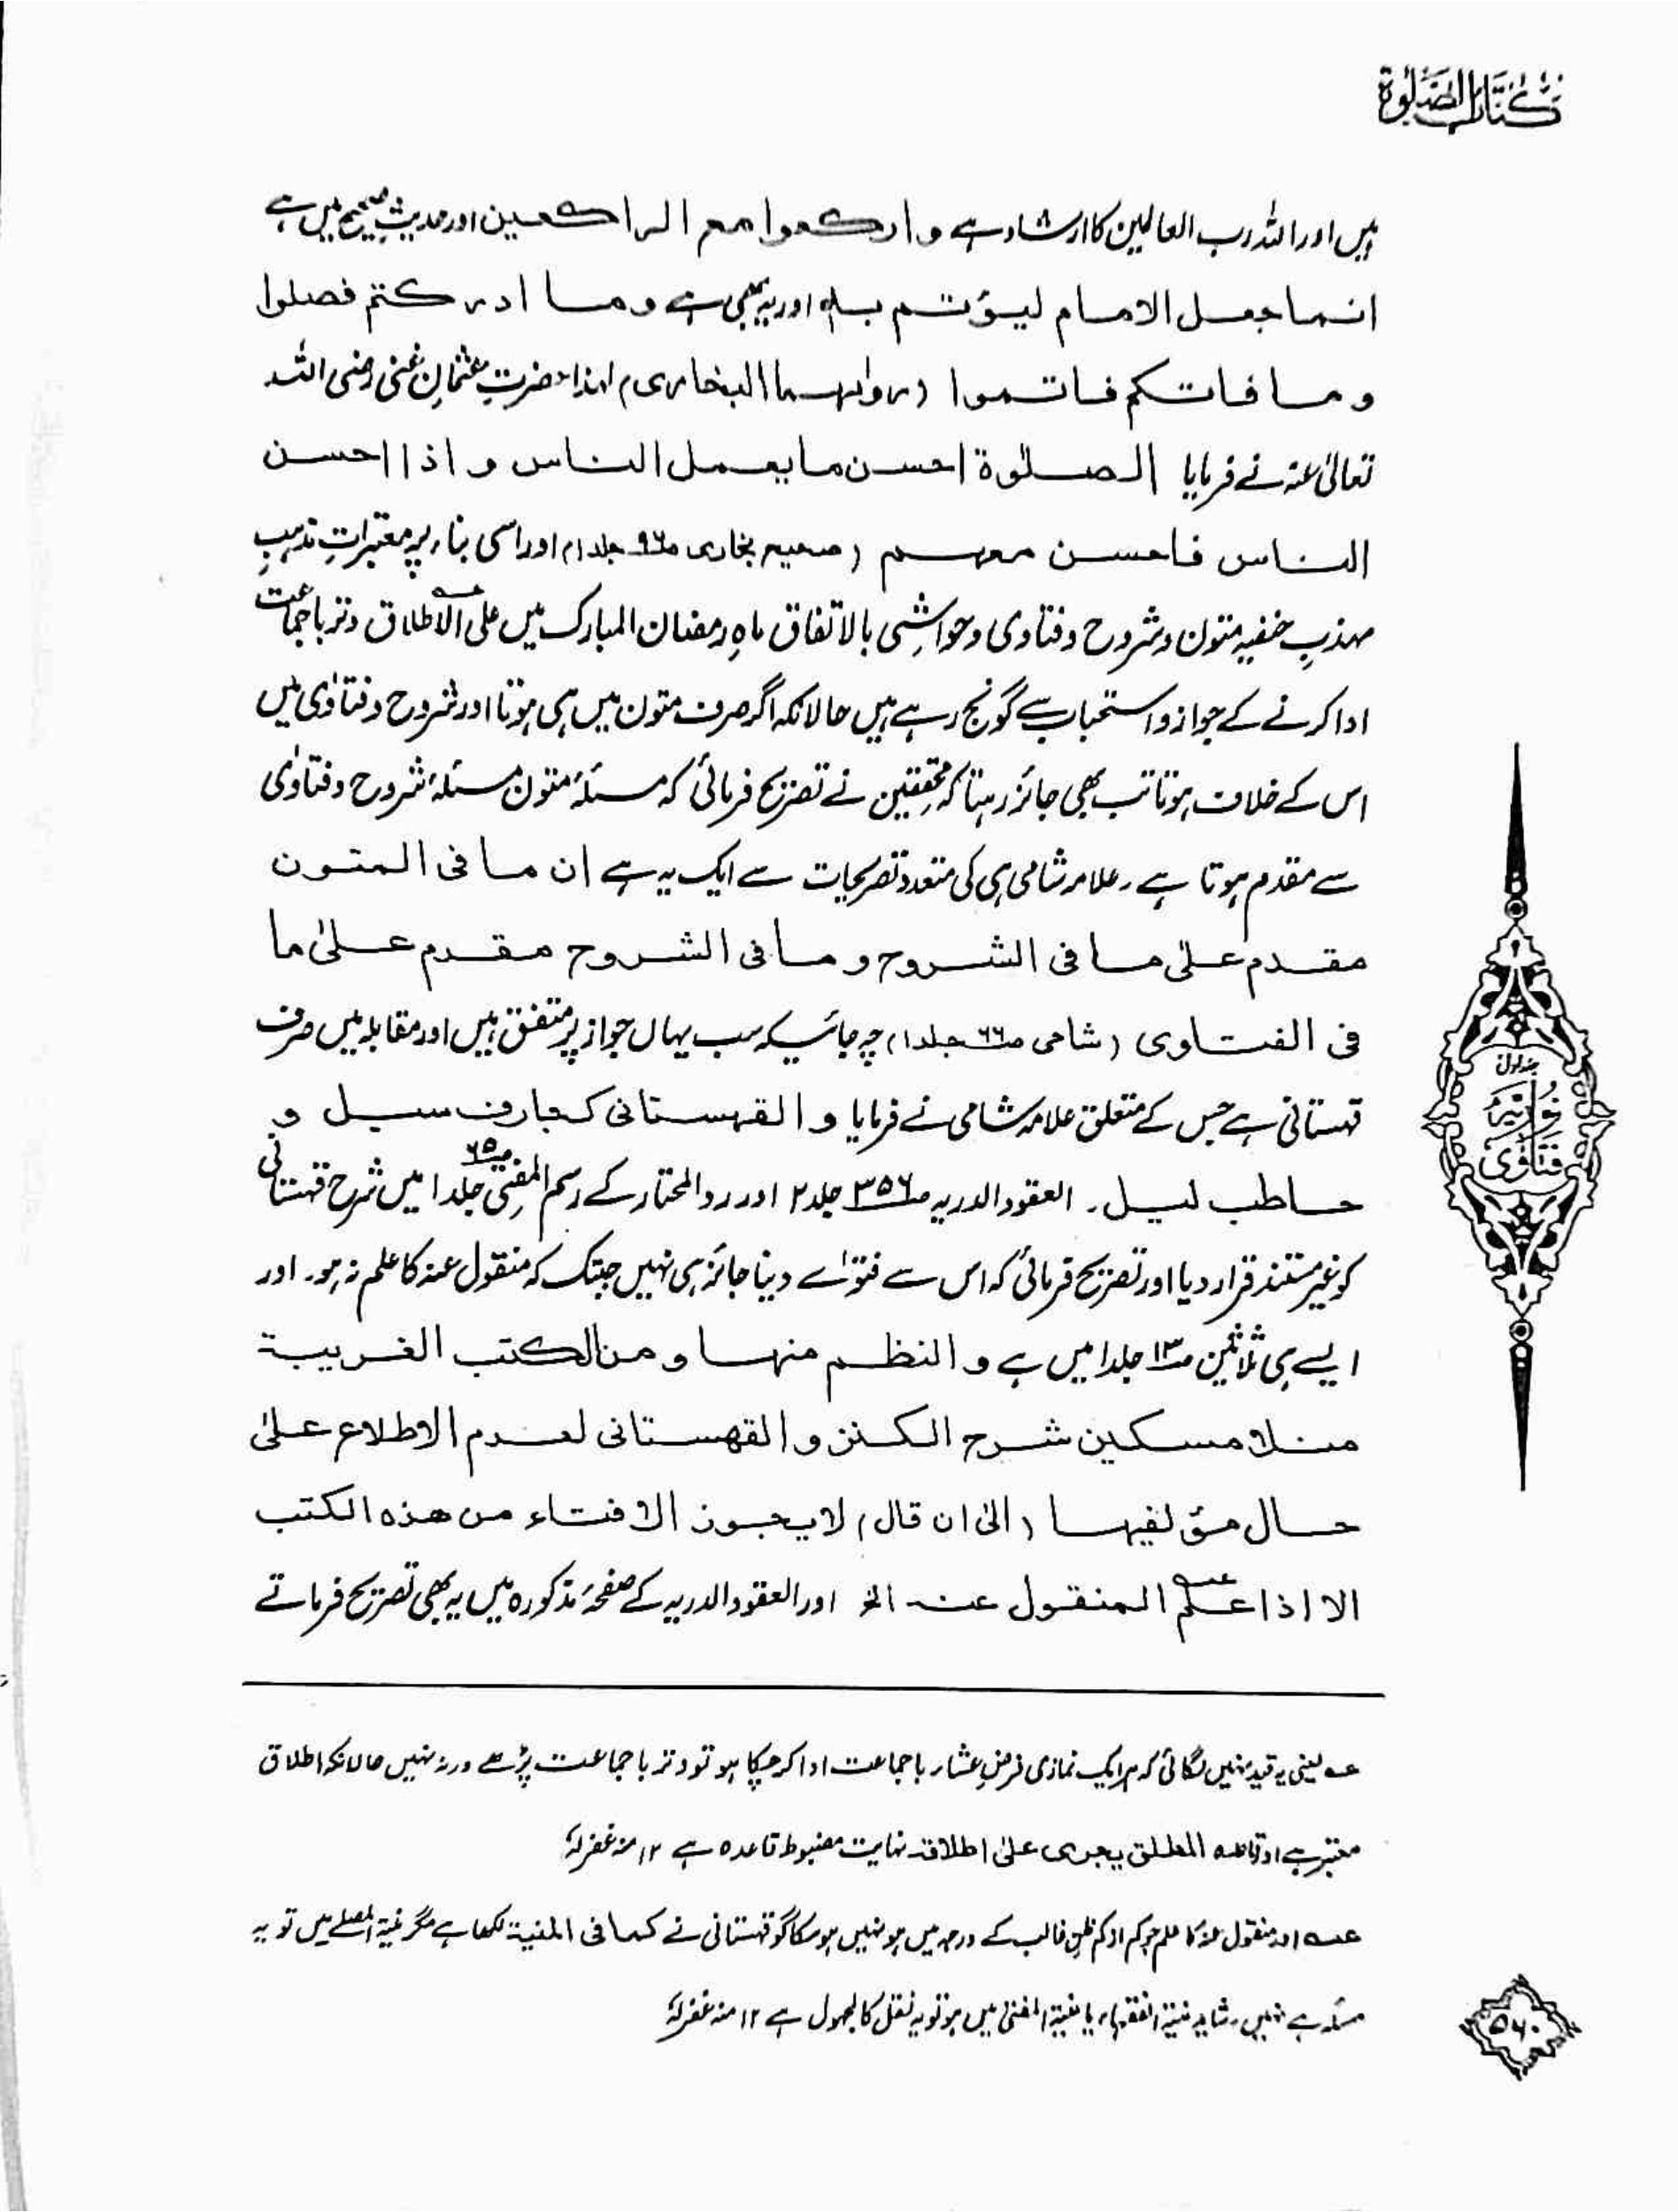 كتاب الصلوة
ہیں اور اللہ رب العالمین کا ارشاد ہے وارکعوا مع الراکعین اور حدیثِ صحیح میں ہے
انما جعل الامام لیؤتم بہ اور یہ بھی ہے وما ادرکتم فصلوا
وما فاتکم فاتموا (رواہما البخاری) لہٰذا حضرتِ عثمانِ غنی رضی اللہ
تعالیٰ عنہ نے فرمایا الصلٰوۃ احسن ما یعمل الناس و اذا احسن
الناس فاحسن معہم (صحیح بخاری ص۹۶ جلد۱) اور اسی بناء پر معتبراتِ مذہبِ
مہذبِ حنفیہ متون و شروح و فتاوی و حواشی بالاتفاق ماہِ رمضان المبارک میں علی الاطلاق عہ وتر باجماعت
ادا کرنے کے جواز و استحباب سے گونج رہے ہیں حالانکہ اگر صرف متون میں ہی ہوتا اور شروح و فتاوٰی میں
اس کے خلاف ہوتا تب بھی جائز رہتا کہ محققین نے تصریح فرمائی کہ مسئلۂ متون مسئلۂ شروح و فتاوٰی
سے مقدم ہوتا ہے۔ علامہ شامی ہی کی متعدد تصریحات سے ایک یہ ہے ان ما فی المتون
مقدم علیٰ ما فی الشروح و ما فی الشروح مقدم علیٰ ما
فی الفتاوی (شامی ص۶۶ جلد۱) چہ جائیکہ سب یہاں جواز پر متفق ہیں اور مقابلہ میں صرف
قہستانی ہے جس کے متعلق علامہ شامی نے فرمایا و القہستانی کجارف سیل و
حاطب لیل۔ العقود الدریہ ص۳۵۶ جلد۲ اور رد المحتار کے رسم المفتی ص۶۵ جلد۱ میں شرح قہستانی
کو غیر مستند قرار دیا اور تصریح فرمائی کہ اس سے فتوٰے دینا جائز ہی نہیں جبتک کہ منقول عنہ کا علم نہ ہو۔ اور
ایسے ہی ثلاثین ص۱۳ جلد۱ میں ہے و النظم منہا و من الکتب الغریبۃ
منلا مسکین شرح الکنز و القہستانی لعدم الاطلاع علیٰ
حال مؤلفیہا (الیٰ ان قال) لا یجوز الافتاء من ھذہ الکتب
الا اذا علم عہ المنقول عنہ الخ اور العقود الدریہ کے صفحۂ مذکورہ میں یہ بھی تصریح فرماتے
عہ یعنی یہ قید نہیں لگائی کہ ہر ایک نمازی فرضِ عشاء باجماعت ادا کر چکا ہو تو وتر باجماعت پڑھے ورنہ نہیں حالانکہ اطلاق
معتبر ہے اور قاعدہ المطلق یجری علیٰ اطلاقہ نہایت مضبوط قاعدہ ہے ۱۲ منہ غفرلہٗ
عہ اور منقول عنہ کا علم جو کم از کم ظنِ غالب کے درجہ میں ہو نہیں ہو سکا گو قہستانی نے کما فی المنیۃ لکھا ہے مگر منیۃ المصلے میں تو یہ
مسئلہ ہے نہیں، شاید منیۃ الفقہاء یا منیۃ المفتی میں ہو تو یہ نقل کالمجہول ہے ۱۲ منہ غفرلہٗ
جلد اول
فتاوٰی نوریہ
۵۶۰